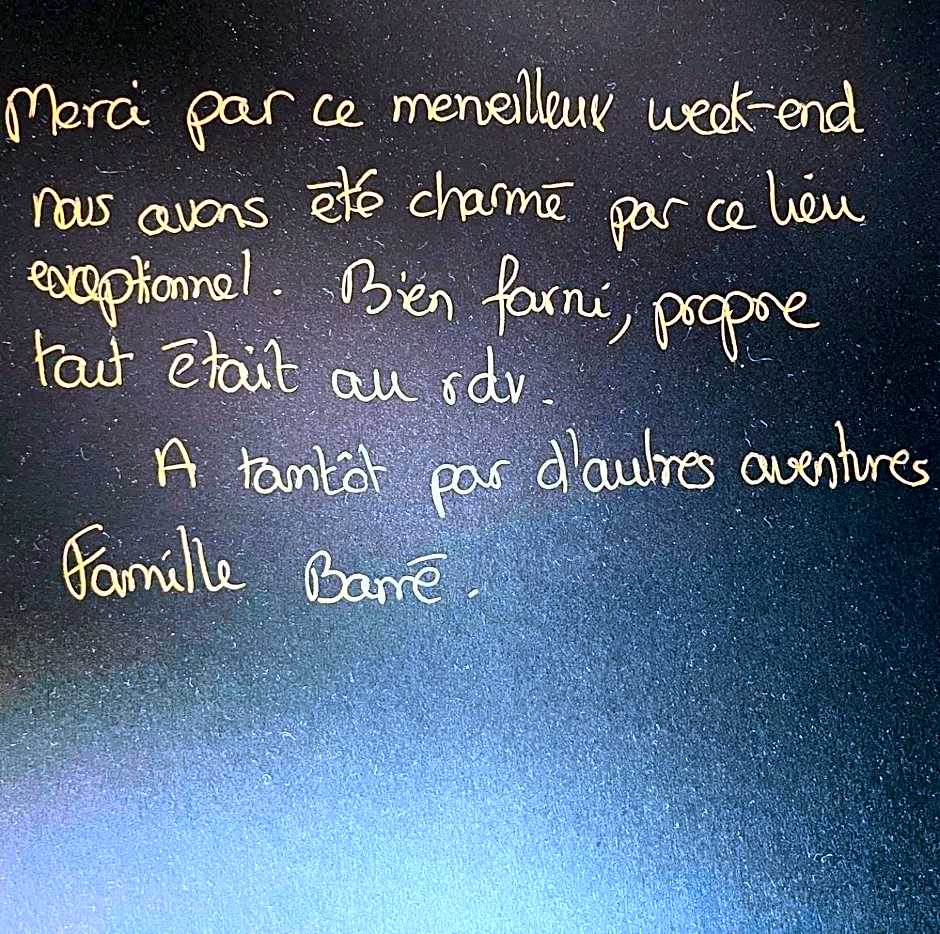 Merci pour ce merveilleux week-end
nous avons été charmé par ce lieu
exceptionnel. Bien fourni, propre
tout était au rdv.
A tantôt pour d'autres aventures
Famille Barré.